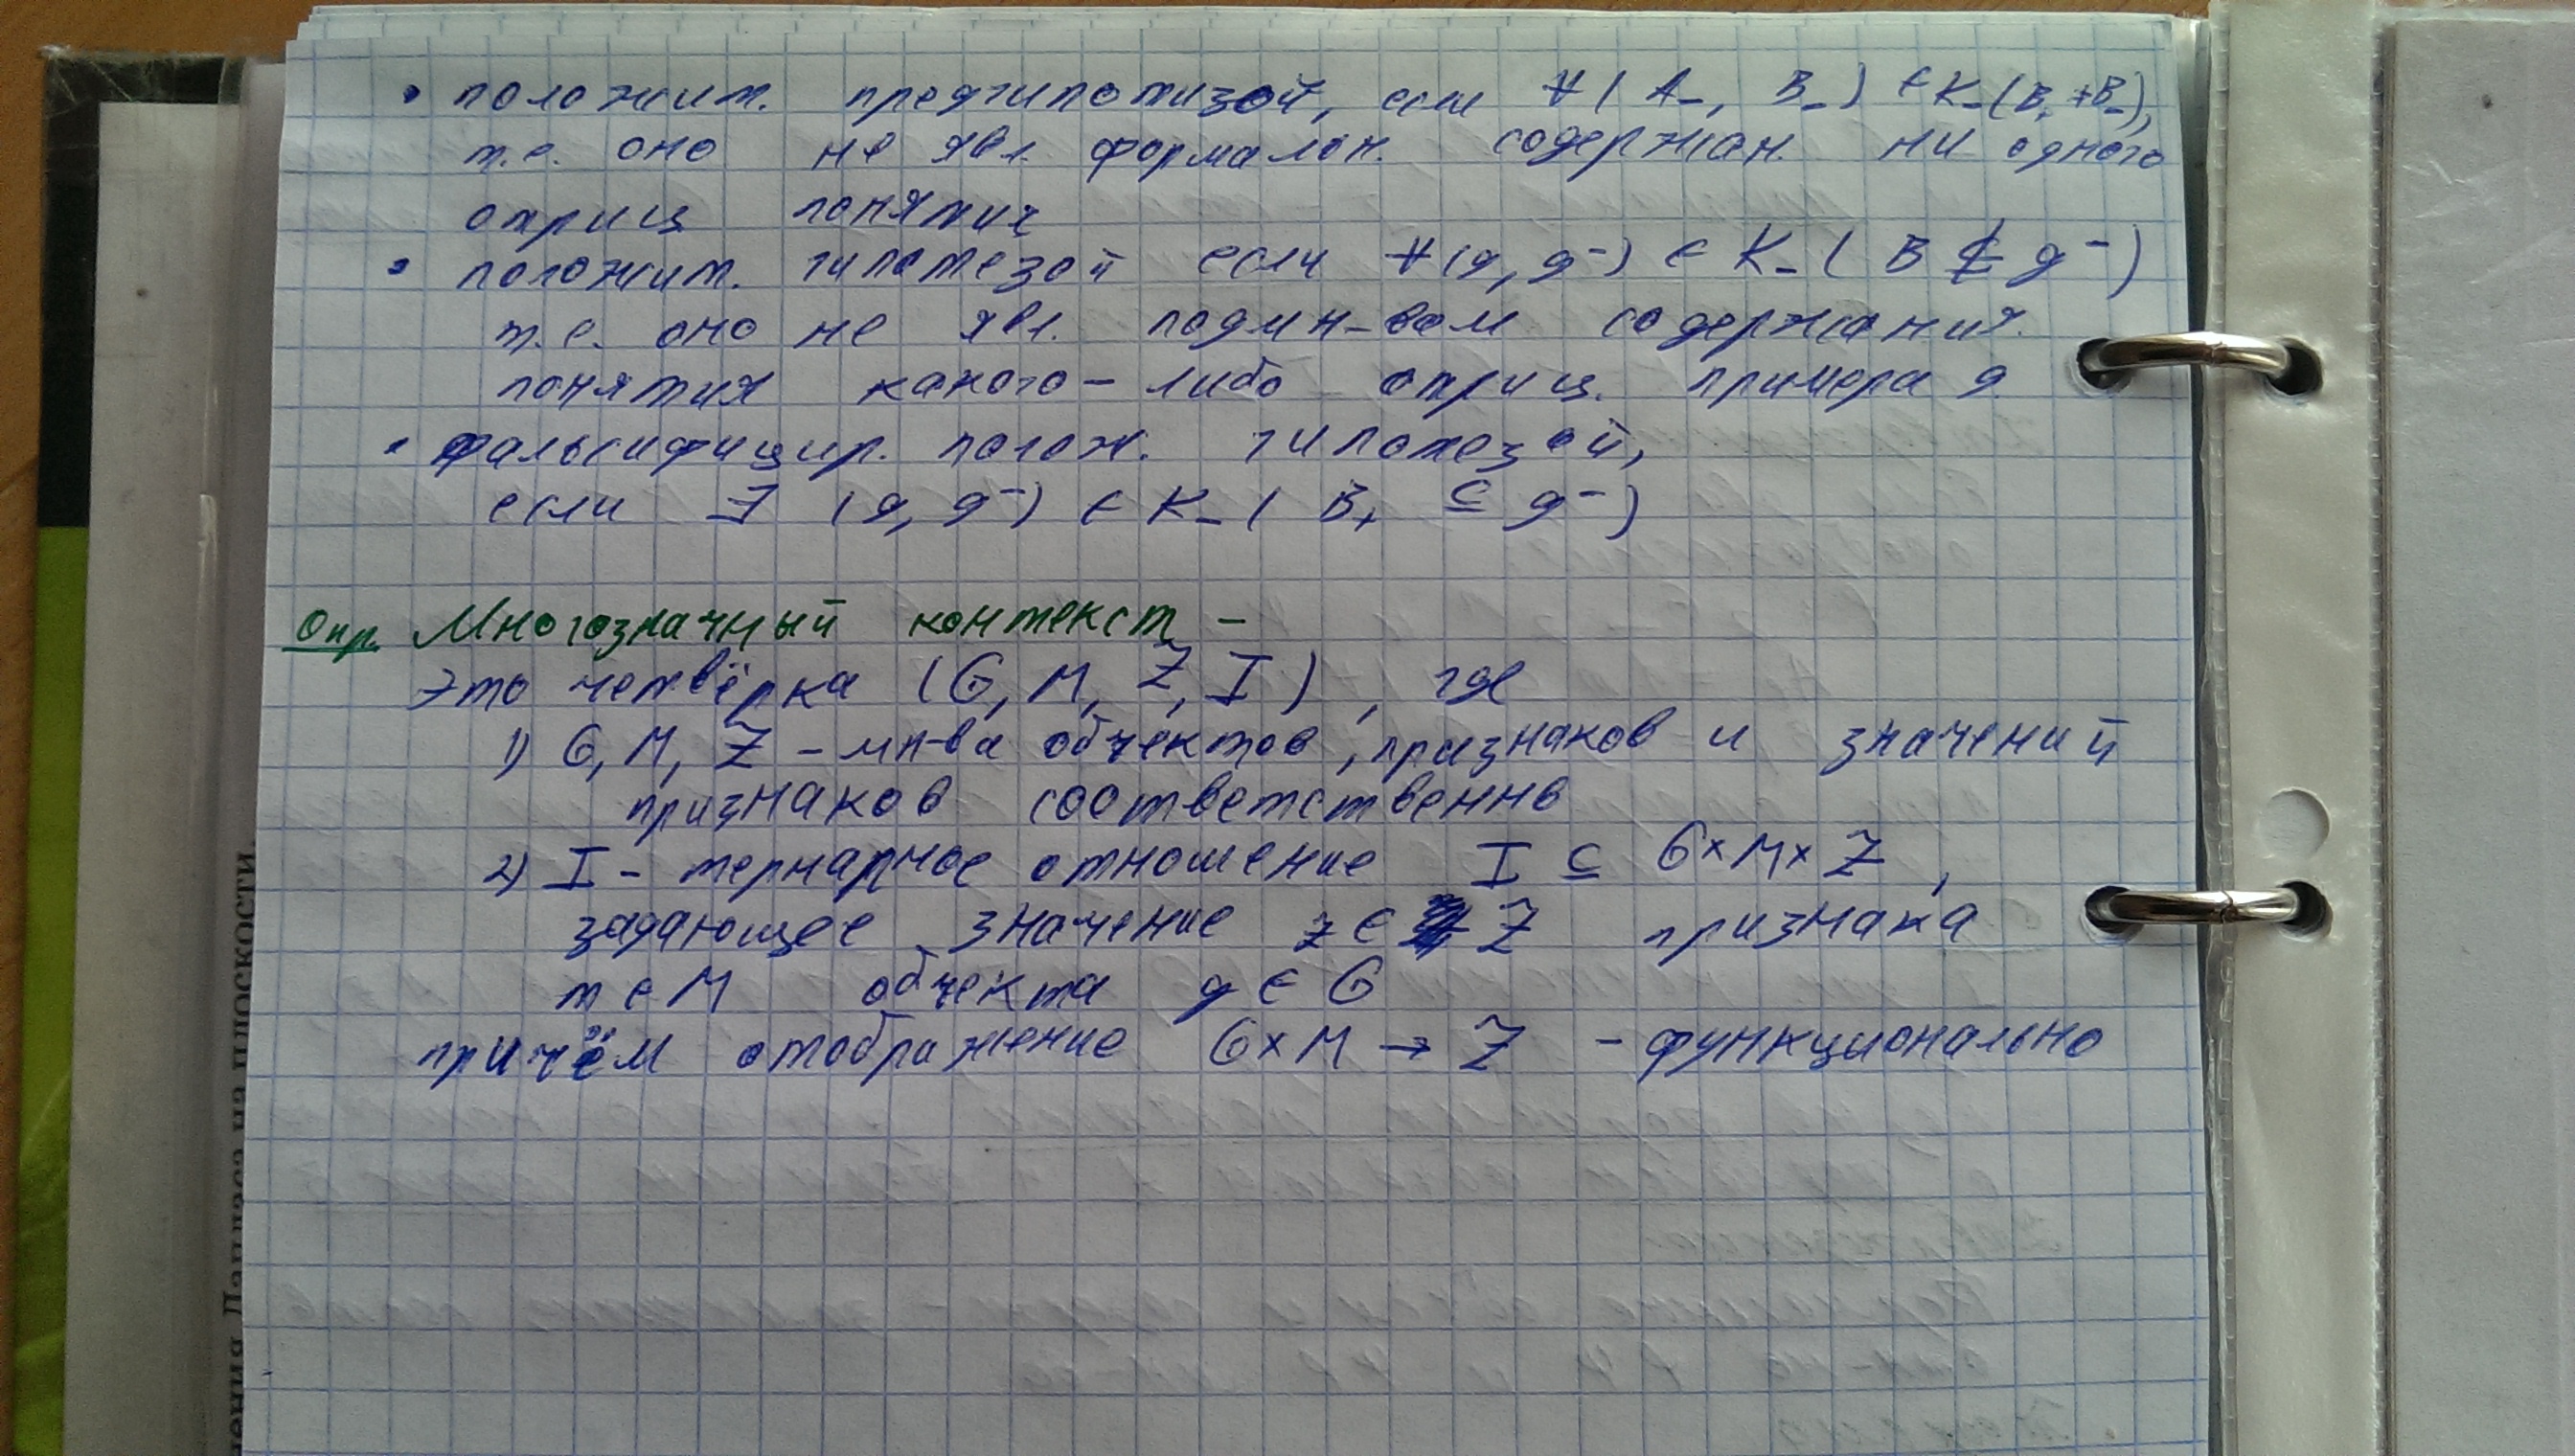 • положит. предгипотизой, если ∀(A₋, B₋) ∈ K₋(B₊ ≠ B₋),
т.е. оно не явл. формальн. содержан. ни одного
отриц понятия
• положит. гипотезой если ∀(g, g⁻) ∈ K₋ ( B ⊈ g⁻ )
т.е. оно не явл. подмн-вом содержания
понятия какого-либо отриц. примера g
• фальсифицир. полож. гипотезой,
если ∃ (g, g⁻) ∈ K₋ ( B₊ ⊆ g⁻ )
Опр. Многозначный контекст –
Это четвёрка (G, M, Z, I), где
1) G, M, Z – мн-ва объектов, признаков и значений
признаков соответственно
2) I – тернарное отношение I ⊆ G×M×Z,
задающее значение z ∈ Z признака
m ∈ M объекта g ∈ G
причём отображение G×M → Z – функционально
ения Лапласа на плоскости.